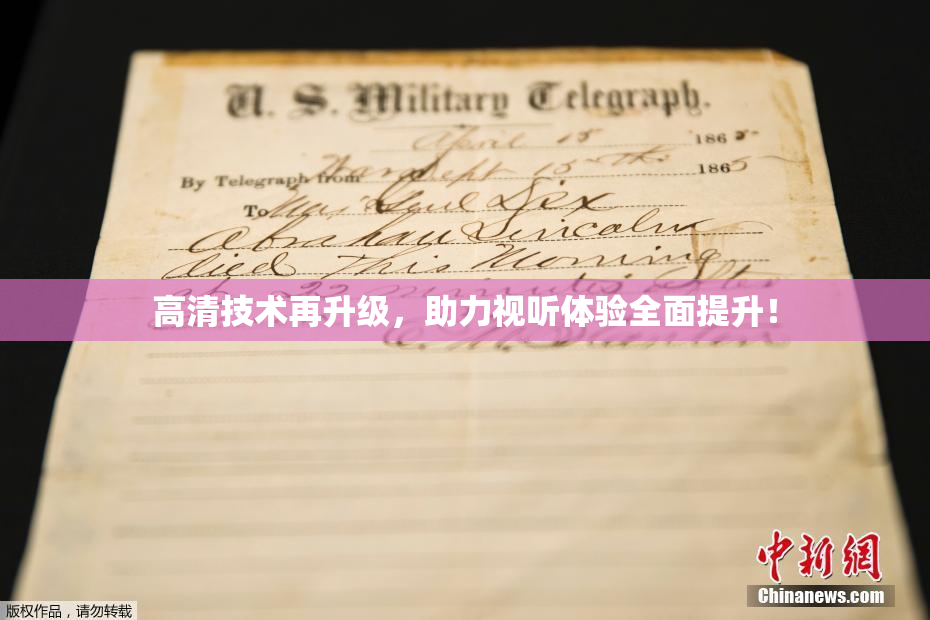 U. S. Military Telegraph.
April 15 1865.
By Telegraph from War Dept 15th 1865
To Maj Genl Dix
Abraham Lincoln
died This Morning
at 22 minutes after
高清技术再升级，助力视听体验全面提升！
E. M. Stanton
中新网
Chinanews.com
版权作品，请勿转载